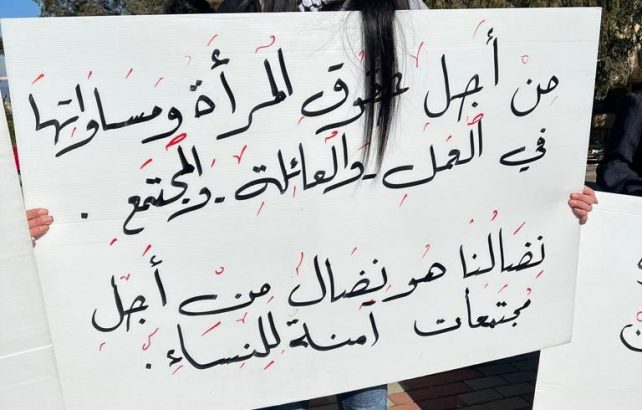 من أجل حقوق المرأة ومساواتها
في العمل - والعائلة - والمجتمع .
نضالنا هو نضال من أجل
مجتمعات آمنة للنساء .